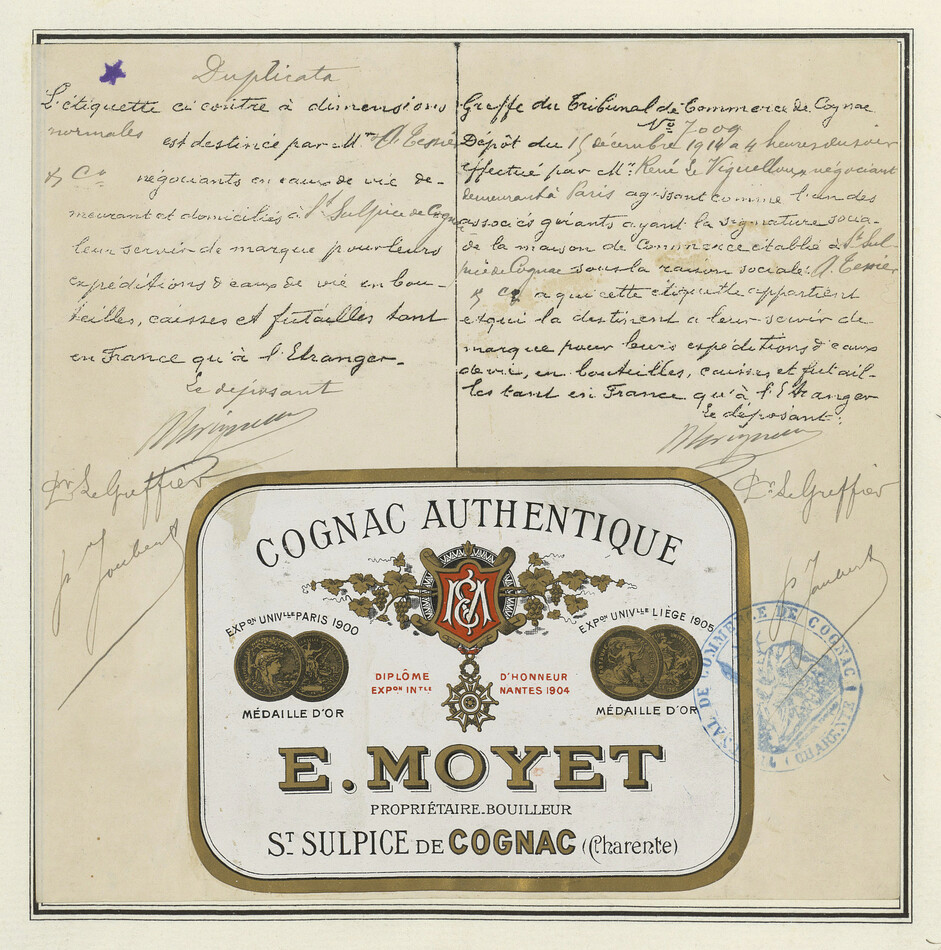 Duplicata
L'étiquette ci contre à dimensions
normales
est destinée par Mr A. Tessier
& Cie négociants en eaux de vie de-
meurant et domiciliés à St Sulpice de Cognac
leur servir de marque pour leurs
expéditions d'eaux de vie en bou-
teilles, caisses et futailles tant
en France qu'à l'Etranger.
Le déposant
Pr Le Greffier
P. Joubert
Greffe du Tribunal de Commerce de Cognac
No 7009
Dépôt du 15 décembre 1914 à 4 heures du soir
effectué par Mr René Le Viguelloux négociant
demeurant à Paris agissant comme l'un des
associés gérants ayant la signature socia-
de la maison de Commerce établie à St Sul-
pice de Cognac sous la raison sociale: A. Tessier
& Cie a qui cette étiquette appartient
et qui la destinent a leur servir de
marque pour leurs expéditions d'eaux
de vie, en bouteilles, caisses et futail-
les tant en France qu'à l'Etranger
Le déposant.
Pr Le Greffier
P. Joubert
COGNAC AUTHENTIQUE
EXPON UNIVLLE PARIS 1900
EXPON UNIVLLE LIÈGE 1905
DIPLÔME D'HONNEUR
EXPON INTLE NANTES 1904
MÉDAILLE D'OR
MÉDAILLE D'OR
E. MOYET
PROPRIÉTAIRE-BOUILLEUR
ST SULPICE DE COGNAC (Charente)
TRIBUNAL DE COMMERCE DE COGNAC
(CHARENTE)